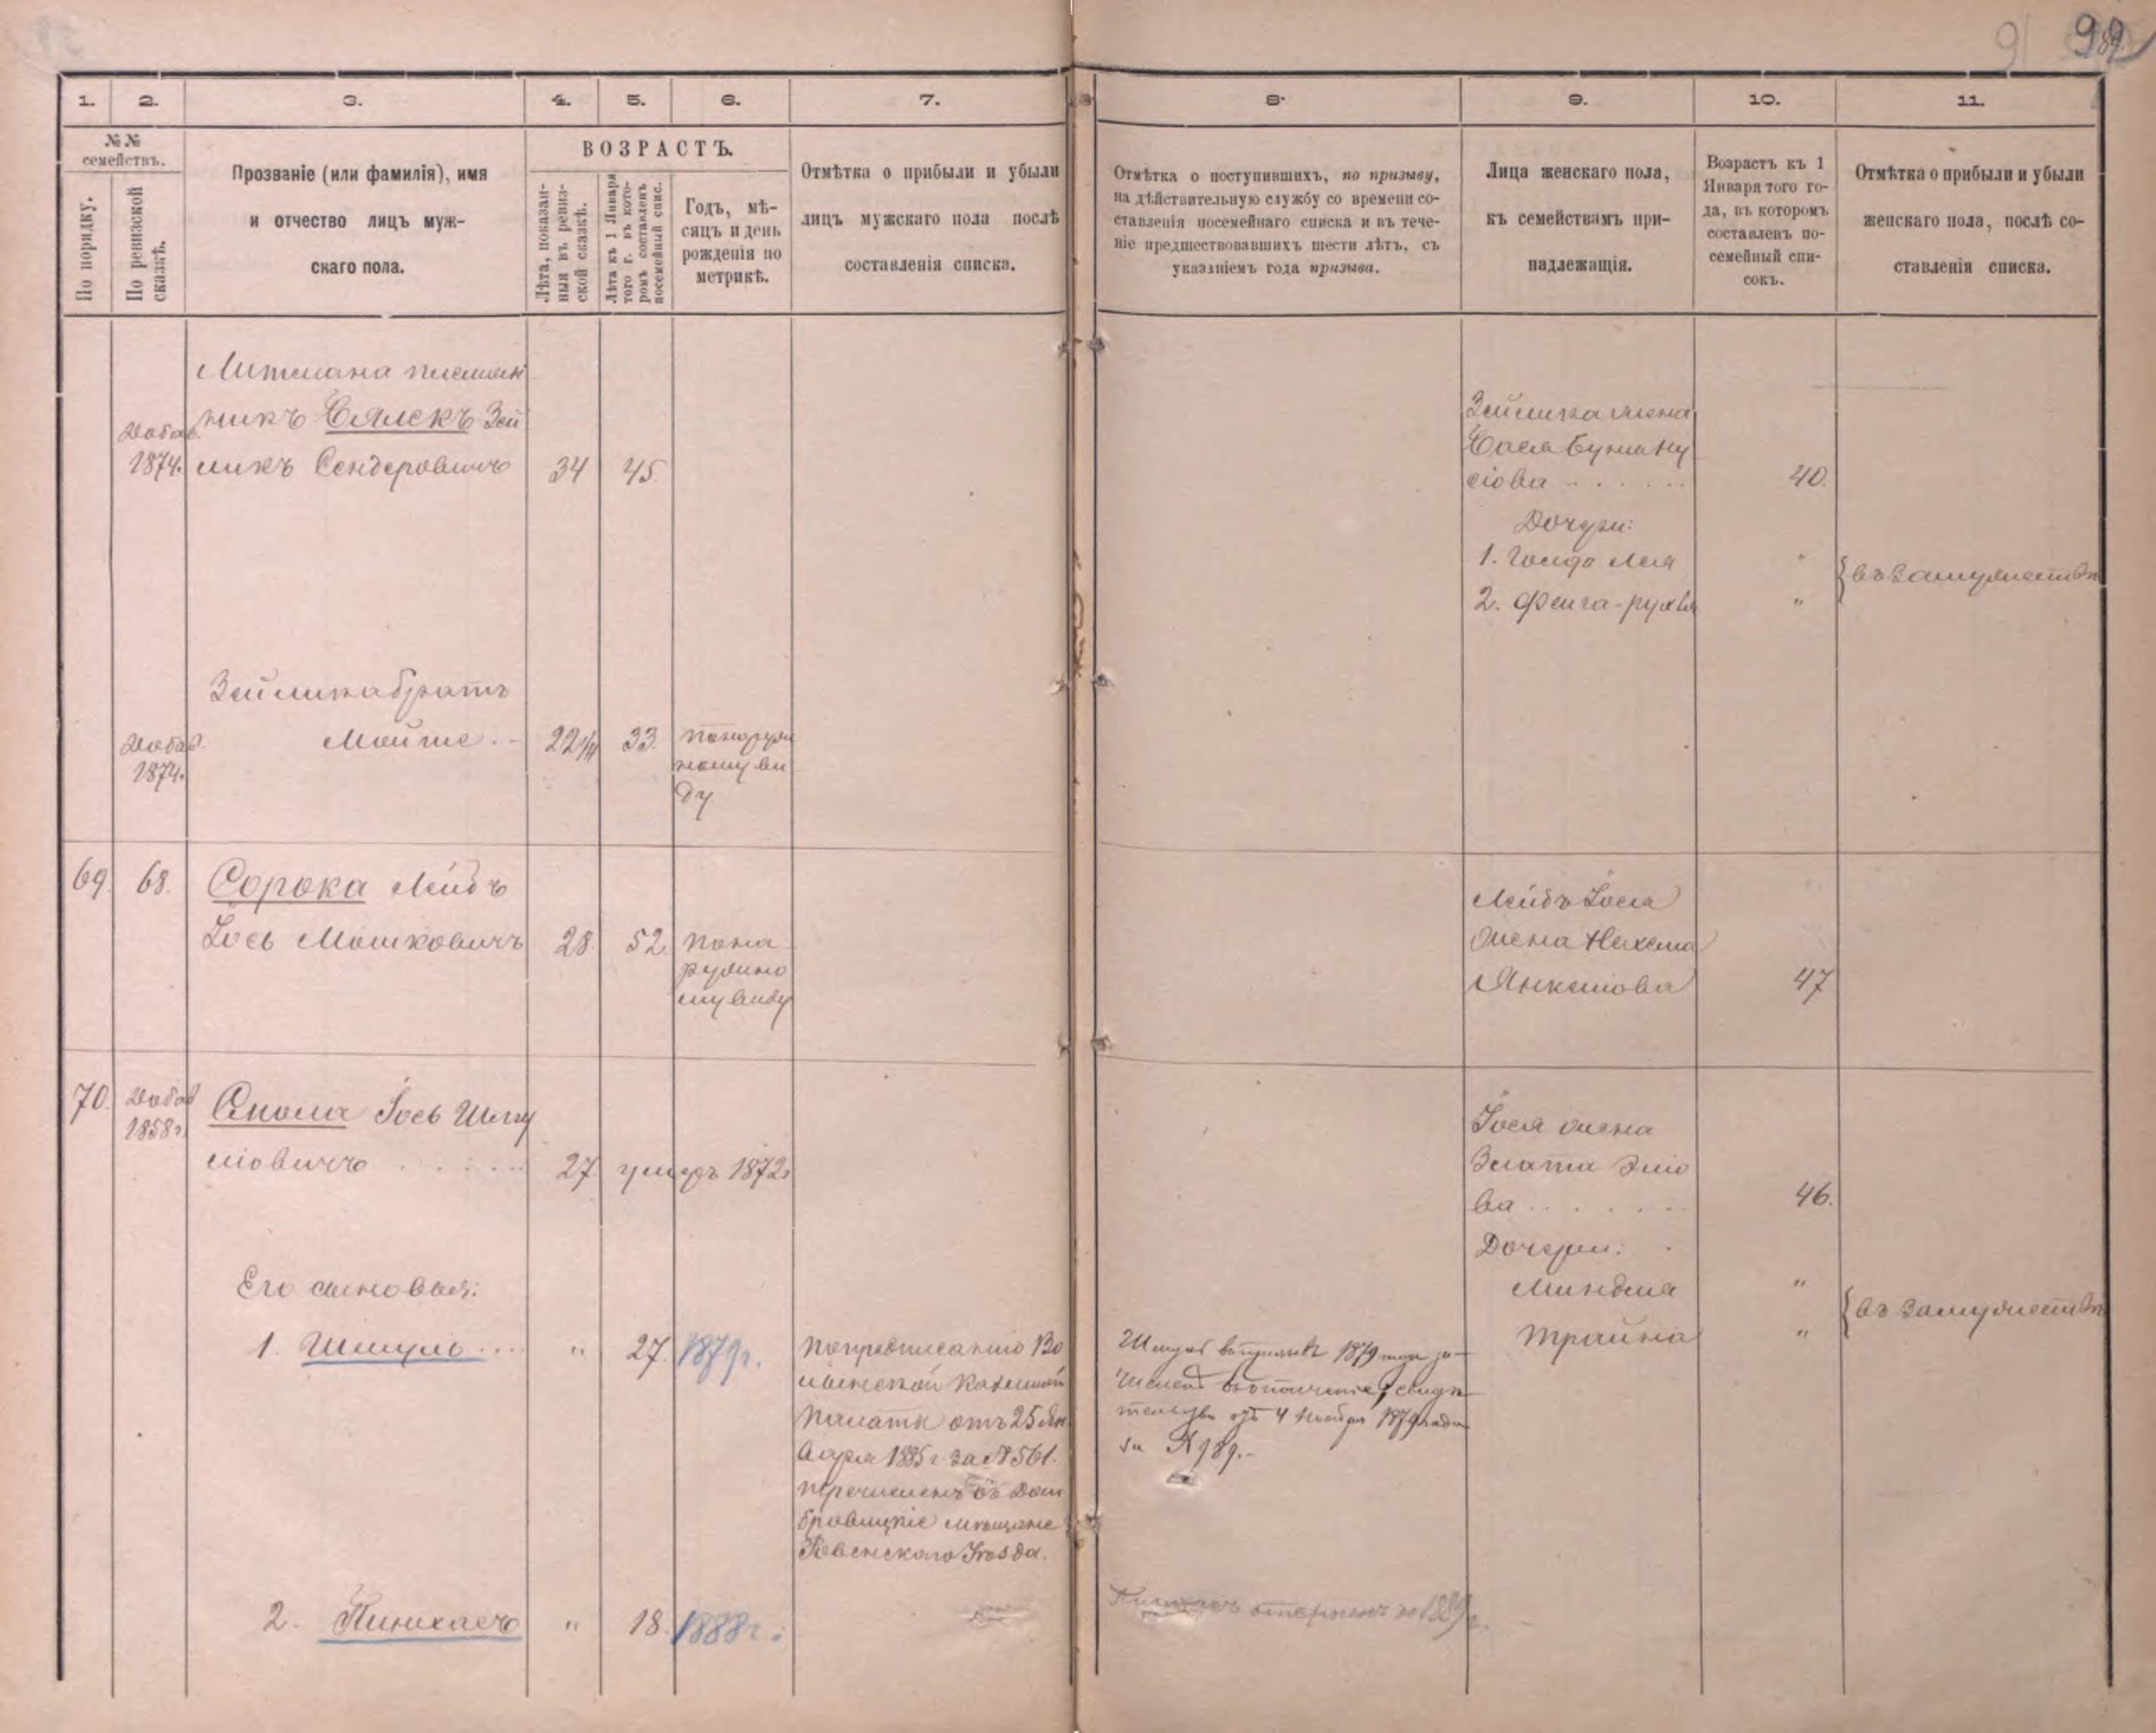 91 92
1. 2. 3. 4. 5. 6. 7. 8. 9. 10. 11.
№№ семействъ.
По порядку.
По ревизской сказкѣ.
Прозваніе (или фамилія), имя
и отчество лицъ муж-
скаго пола.
ВОЗРАСТЪ.
Лѣта, показан-
ныя въ ревиз-
ской сказкѣ.
Лѣта къ 1 Января
того г. въ кото-
ромъ составленъ
посемейный спис.
Годъ, мѣ-
сяцъ и день
рожденія по
метрикѣ.
Отмѣтка о прибыли и убыли
лицъ мужскаго пола послѣ
составленія списка.
Отмѣтка о поступившихъ, по призыву,
на дѣйствительную службу со времени со-
ставленія посемейнаго списка и въ тече-
ніе предшествовавшихъ шести лѣтъ, съ
указаніемъ года призыва.
Лица женскаго пола,
къ семействамъ при-
надлежащія.
Возрастъ къ 1
Января того го-
да, въ которомъ
составленъ по-
семейный спи-
сокъ.
Отмѣтка о прибыли и убыли
женскаго пола, послѣ со-
ставленія списка.
Добав.
1874.
Литмана племян
никъ Зей
ликъ Сендеровичъ 34 45.
Зейлика жена
сіова 40.
Дочери:
1. Лея "
2. Фейга-рухля "
въ замужествѣ
Зейлика братъ
Добав.
1874.
Мойше. 22 33. по наруж
ному ви
ду
69. 68. Сорока Лейбъ
Іось Мошковичъ 28. 52. по на
ружно
му виду
Лейбъ Іося
жена Нехема
Янкелова 47
70. Добав
1858 г.
Іось Шму
ліовичъ 27 умеръ 1872 г
Іося жена
Злата Элio
ва 46.
Дочери:
Миндля "
Трайна "
въ замужествѣ
Его сыновья:
1. Шмуль " 27. 1879 г.
По предписанію Во
лынской Казенной
Палаты отъ 25 Ян
варя 1885 г. за № 561.
перечисленъ въ Дом
бровицкіе мѣщане
Ровенскаго Уѣзда.
Шмуль въ призывѣ 1879 года за-
численъ въ ополченіе, свидѣ-
тельство отъ 4 Ноября 1879 года
за № 189.-
2. Пинхасъ " 18. 1888 г.